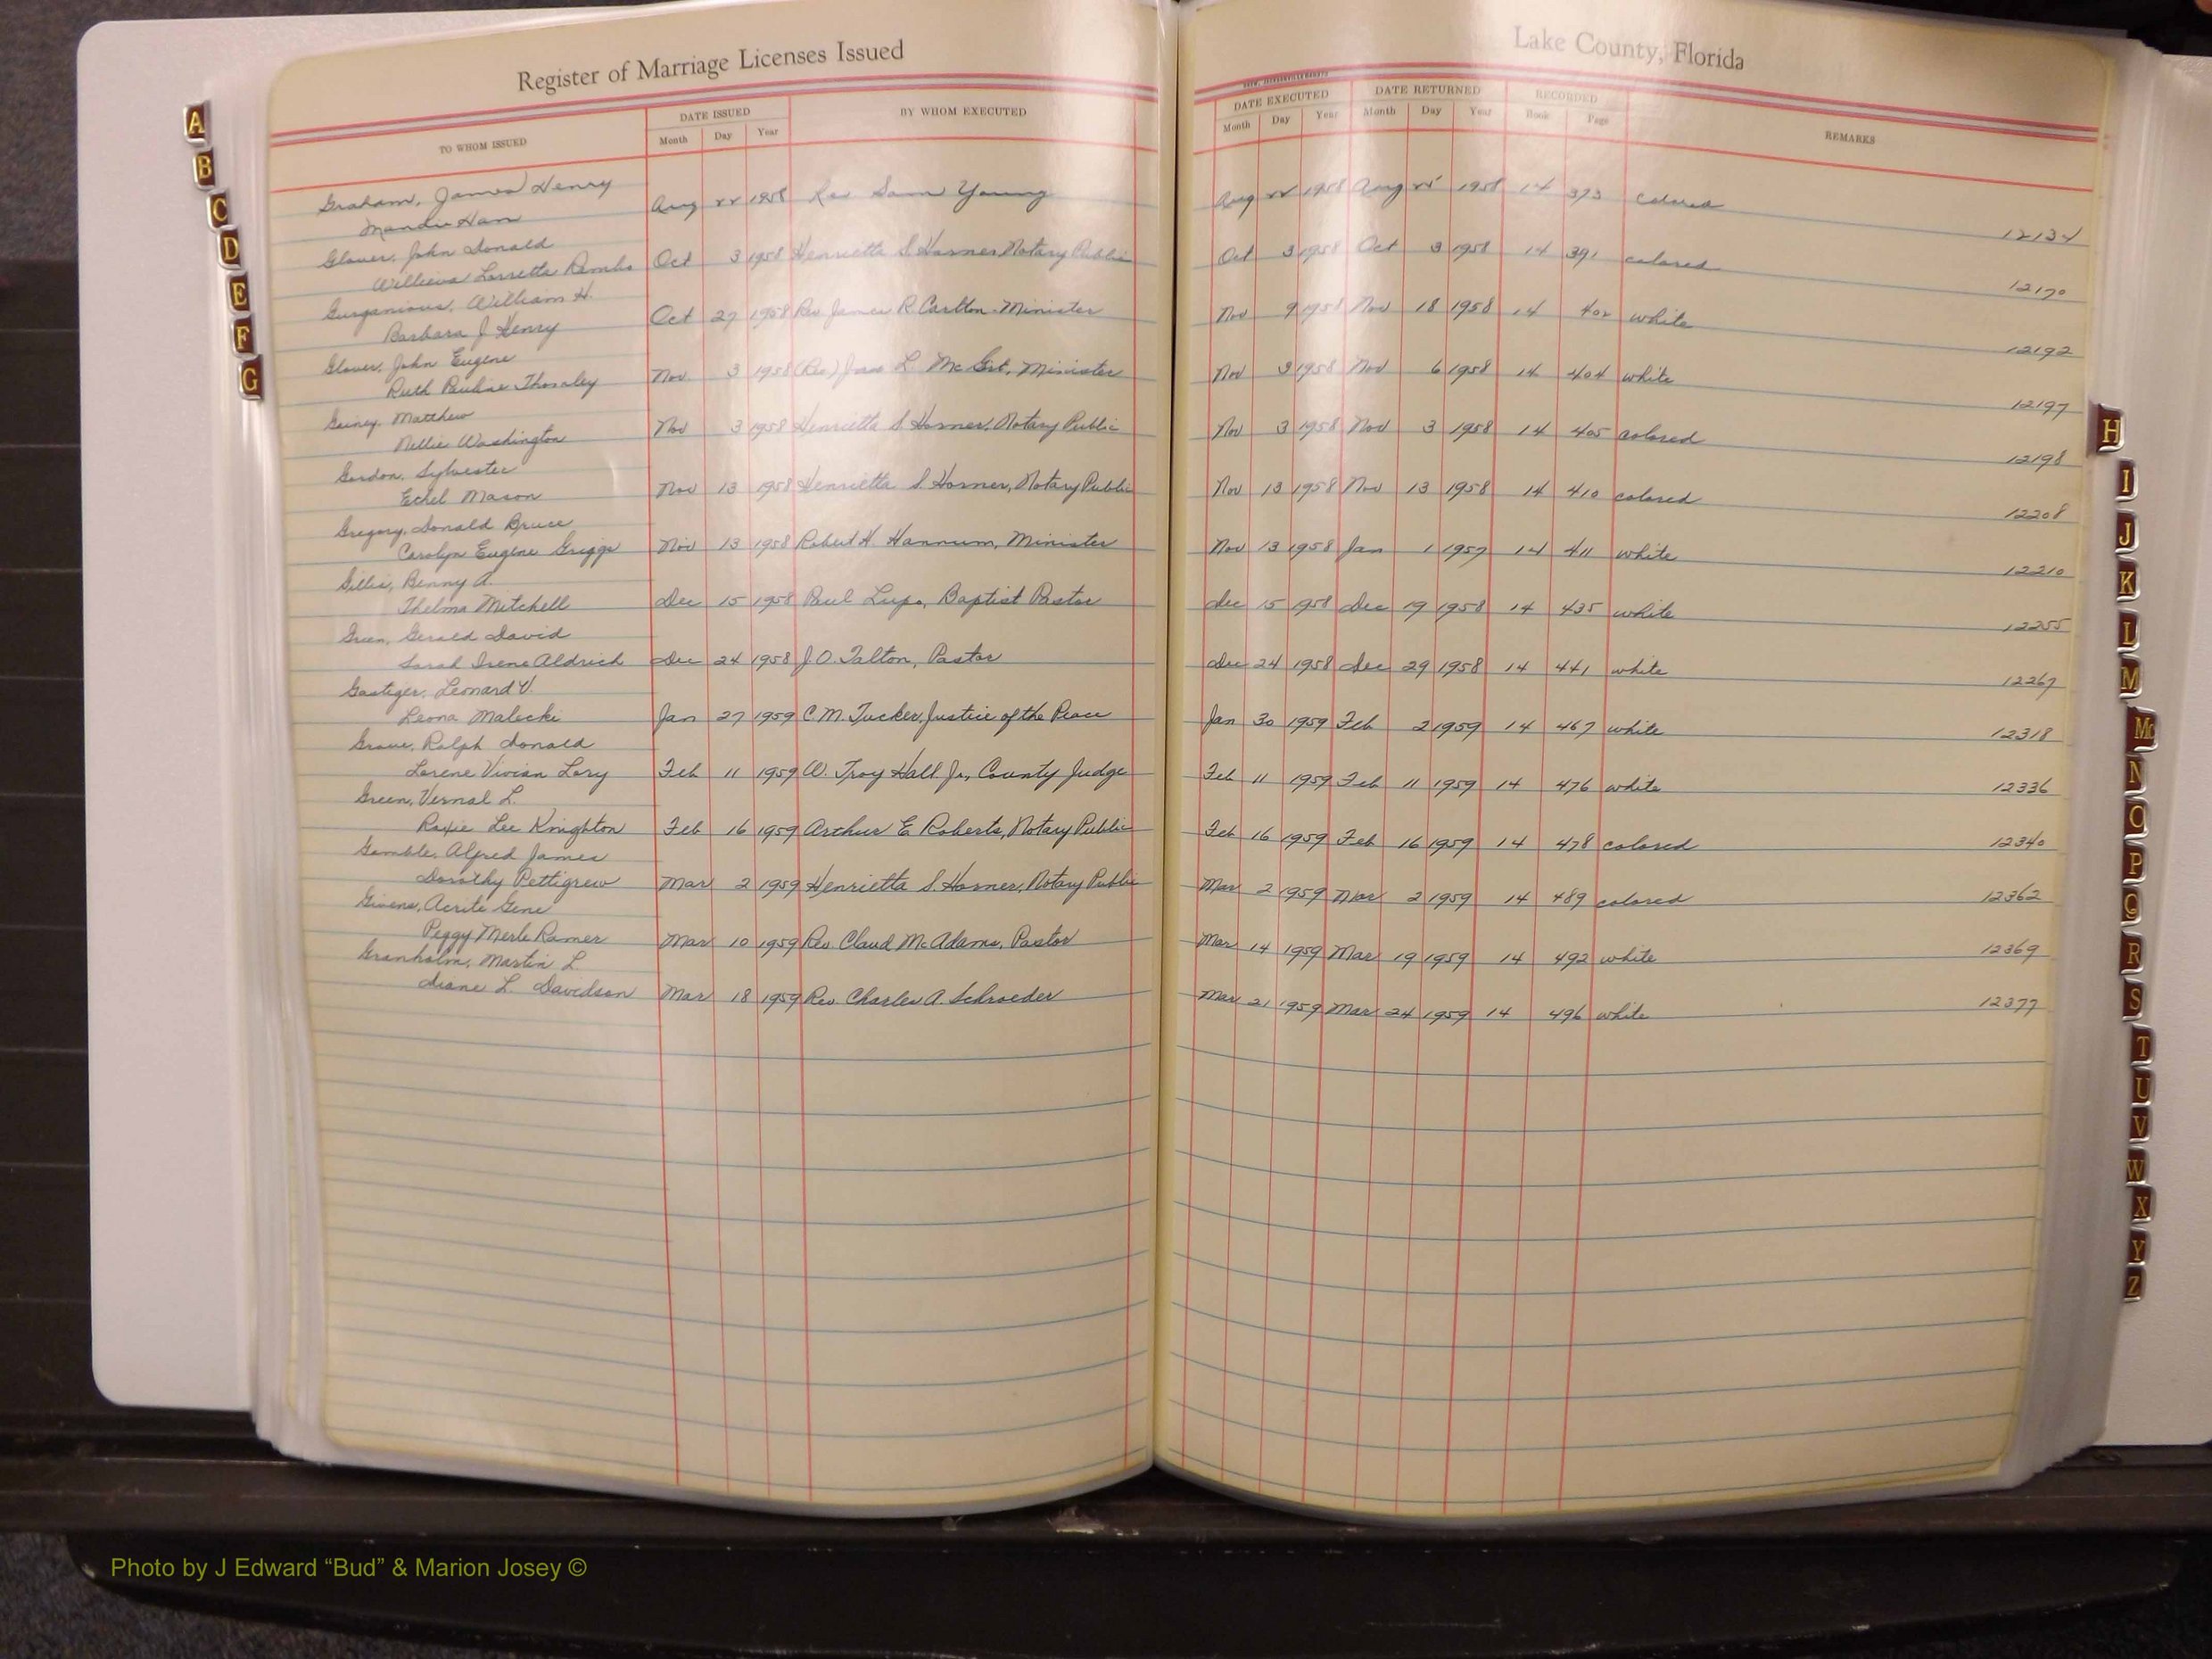 Register of Marriage Licenses Issued
Lake County, Florida
TO WHOM ISSUED
DATE ISSUED
Month Day Year
BY WHOM EXECUTED
DATE EXECUTED
Month Day Year
DATE RETURNED
Month Day Year
RECORDED
Book Page
REMARKS
Graham, James Henry
Aug 22 1958 Rev Sam Young Aug 22 1958 Aug 1958 14 373 colored
12134
Glover, John Donald
Loretta Oct 3 1958 Henrietta S Horner Notary Public Oct 3 1958 Oct 3 1958 14 391 colored
12170
William H.
Barbara J Henry Oct 27 1958 Rev James R. Carlton - Minister Nov 9 1958 Nov 18 1958 14 402 white
12192
Glover, John Eugene
Ruth Pauline Nov. 3 1958 (Rev) L. Minister Nov 3 1958 Nov 6 1958 14 404 white
12197
Gainey, Matthew
Nellie Washington Nov 3 1958 Henrietta S Horner, Notary Public Nov 3 1958 Nov 3 1958 14 405 colored
12198
Gordon, Sylvester
Mason Nov 13 1958 Henrietta S. Horner, Notary Public Nov 13 1958 Nov 13 1958 14 410 colored
12208
Gregory, Donald Bruce
Carolyn Eugene Griggs Nov 13 1958 Robert H. Hannum, Minister Nov 13 1958 Jan 1 14 411 white
12210
Gillis, Benny A.
Thelma Mitchell Dec 15 1958 Paul Lupo, Baptist Pastor Dec 15 1958 Dec 19 1958 14 435 white
12255
Green, Gerald David
Sarah Irene Aldrich Dec 24 1958 J. O. Talton, Pastor Dec 24 1958 Dec 29 1958 14 441 white
12267
Gastiger, Leonard V.
Leona Malecki Jan 27 1959 C. M. Tucker, Justice of the Peace Jan 30 1959 Feb 2 1959 14 467 white
12318
Ralph Donald
Lorene Vivian Lory Feb 11 1959 W. Troy Hall Jr., County Judge Feb 11 1959 Feb 11 1959 14 476 white
12336
Green, Vernal L.
Roxie Lee Knighton Feb 16 1959 Arthur E Roberts, Notary Public Feb 16 1959 Feb 16 1959 14 478 colored
12340
Gamble, Alfred James
Dorothy Pettigrew Mar 2 1959 Henrietta S. Horner, Notary Public Mar 2 1959 Mar 2 1959 14 489 colored
12362
Givens, Acrite Gene
Peggy Merle Ramer Mar 10 1959 Rev. Claud McAdams, Pastor Mar 14 1959 Mar 19 1959 14 492 white
12369
Granholm, Martin L.
Diane L. Davidson Mar 18 1959 Rev Charles A. Schroeder Mar 21 1959 Mar 24 1959 14 496 white
12377
A
B
C
D
E
F
G
H
I
J
K
L
M
Mc
N
O
P
Q
R
S
T
U
V
W
X
Y
Z
Photo by J Edward “Bud” & Marion Josey ©